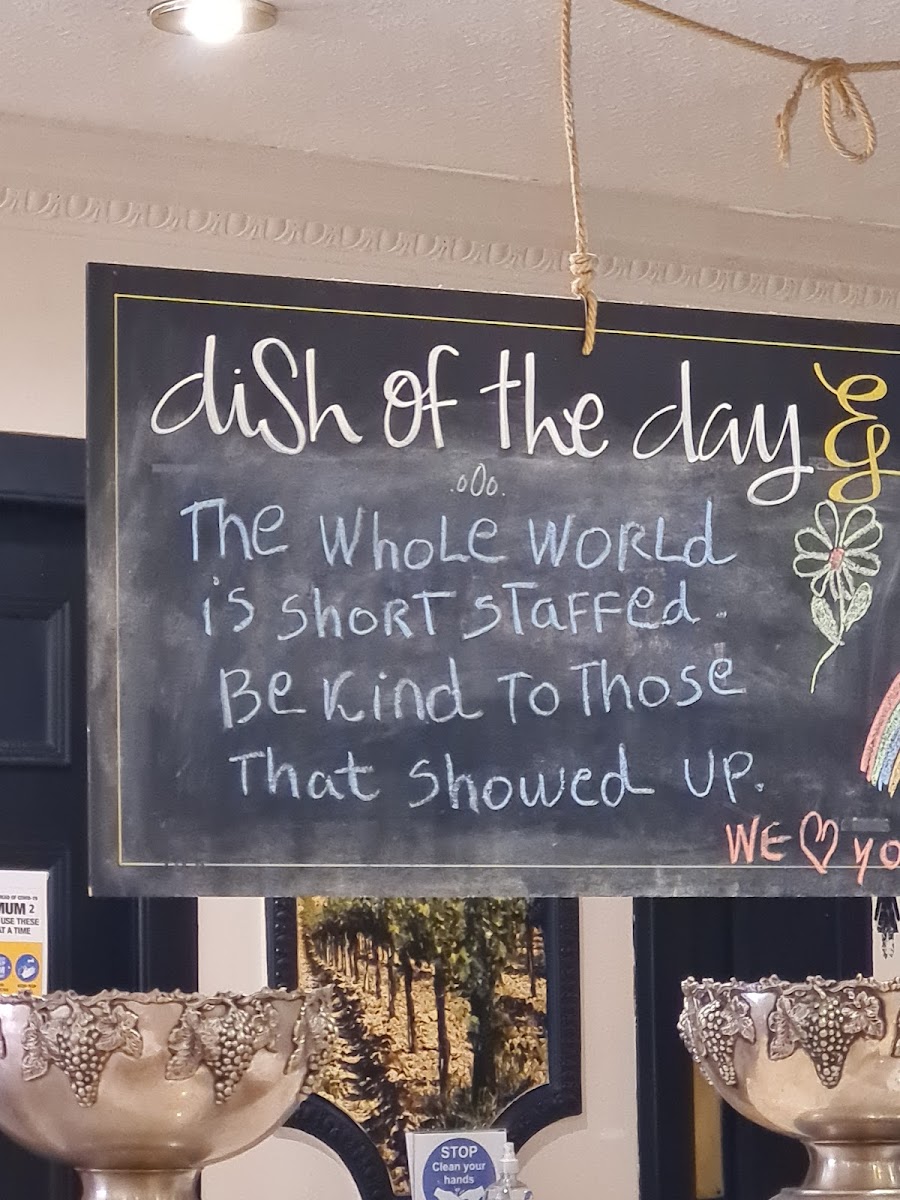 dish of the day &
The Whole World
is short staffed.
Be Kind To Those
That showed up.
WE ♡ yo
MUM 2
USE THESE
AT A TIME
STOP
Clean your
hands